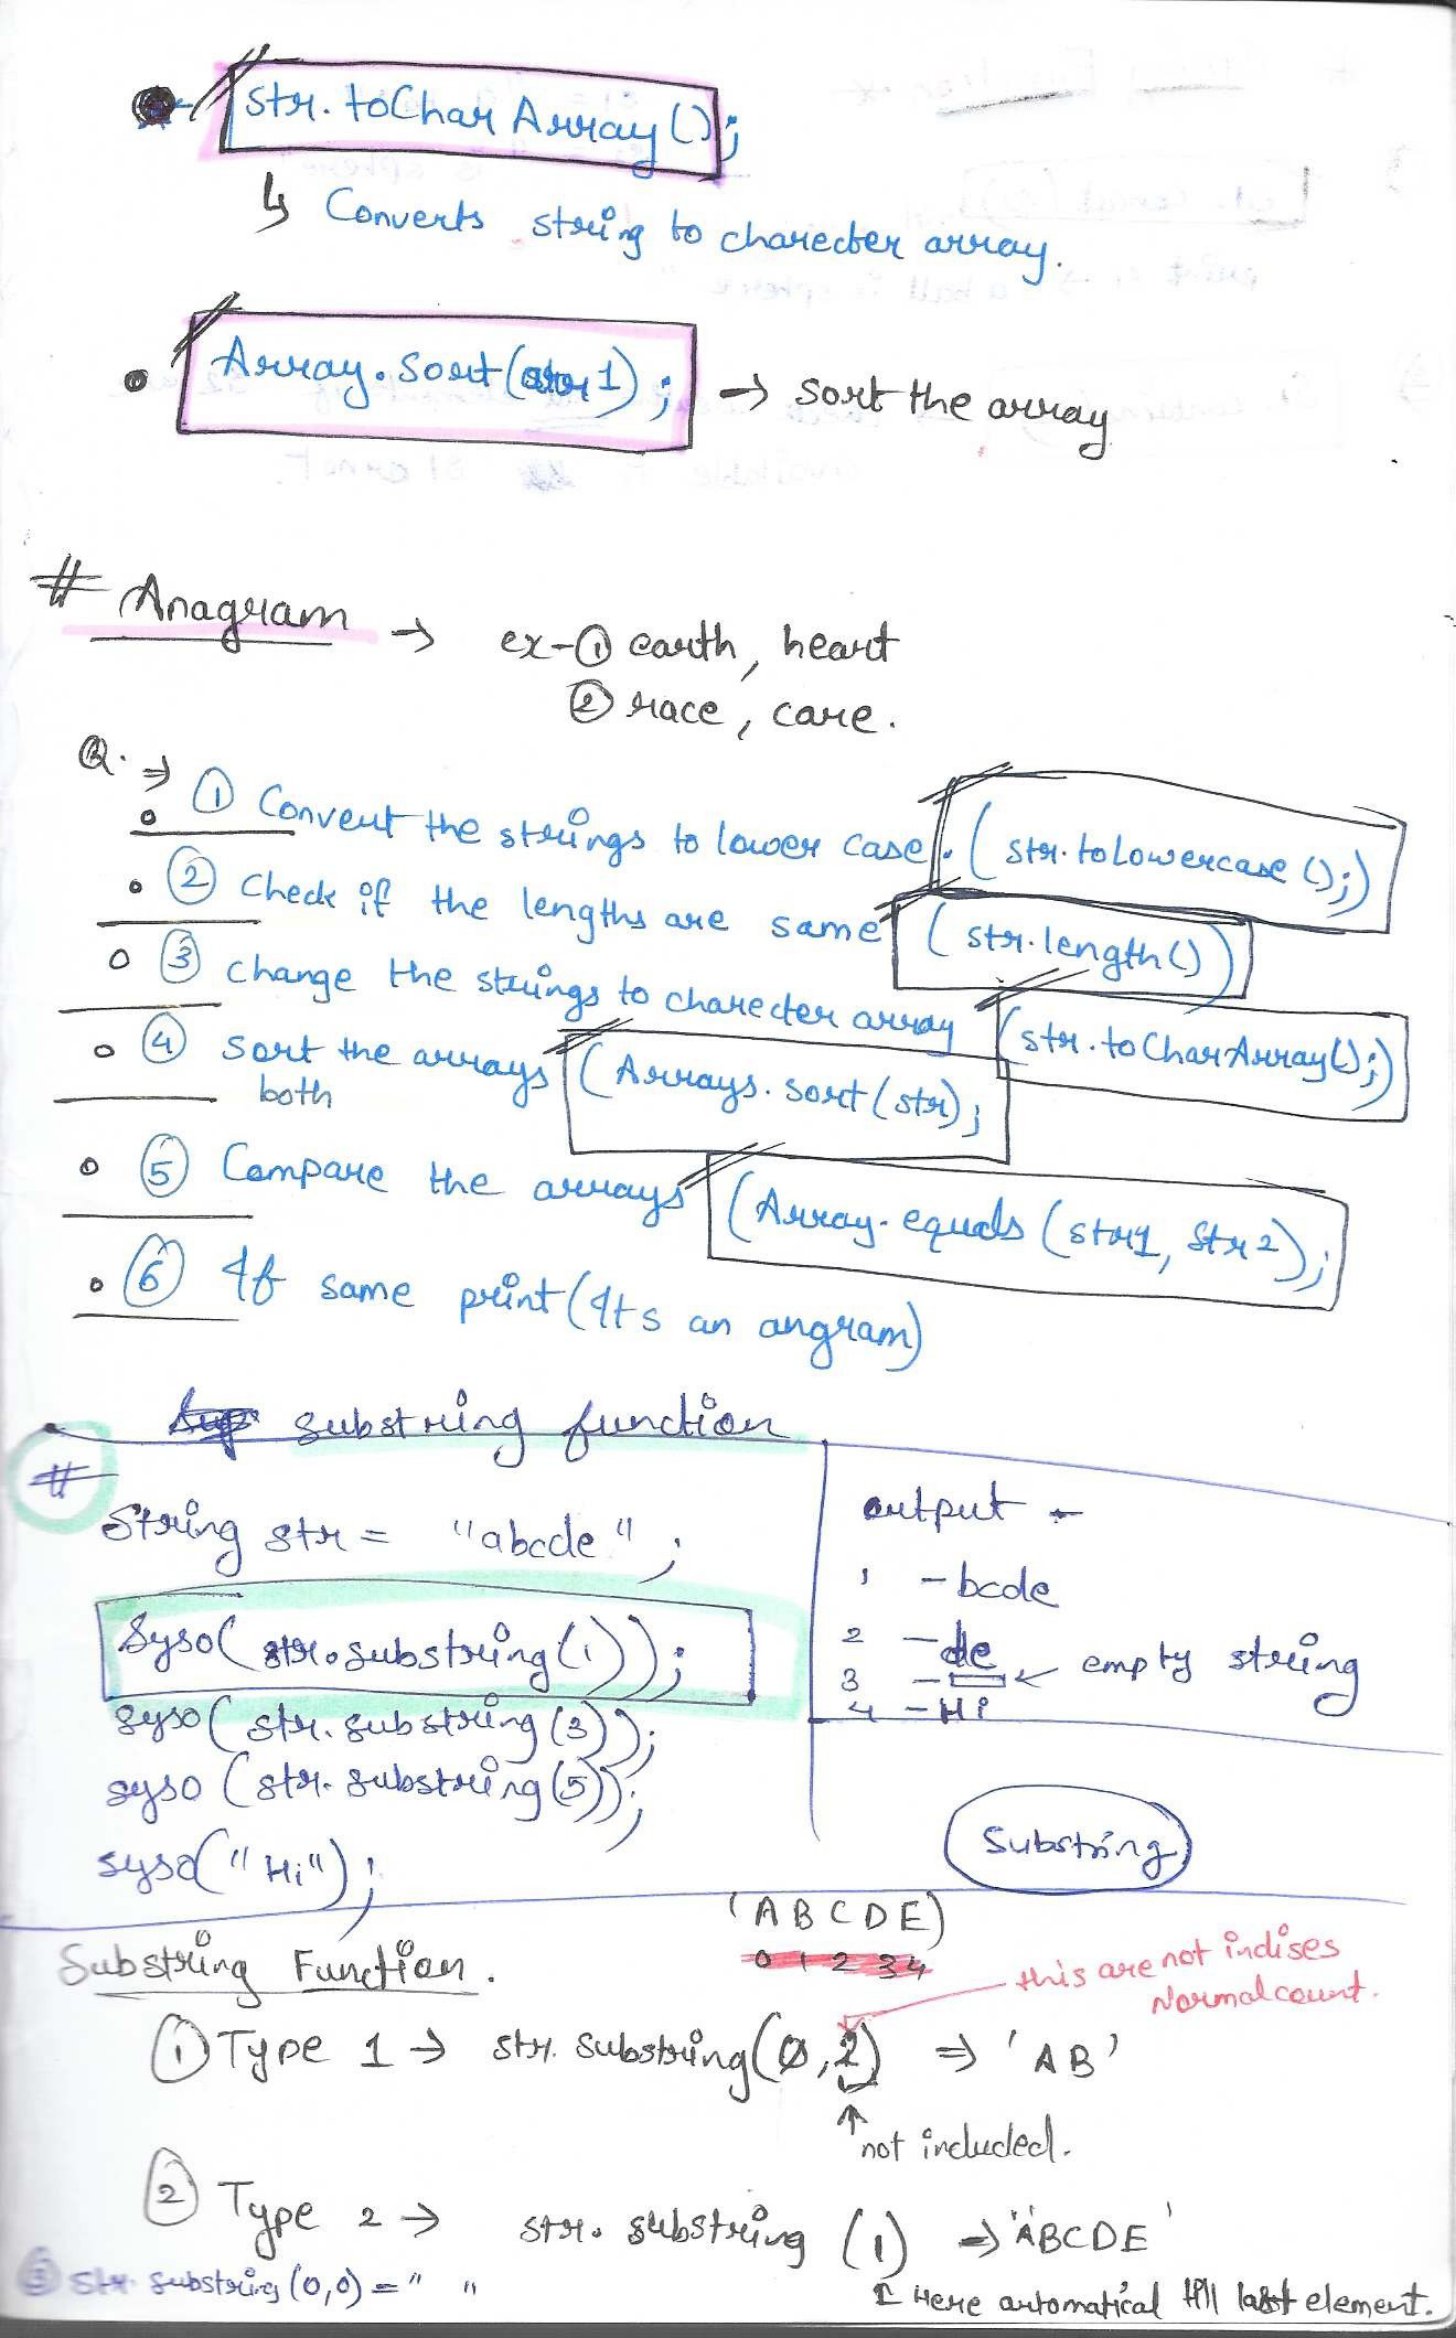 str.toCharArray();
↳ Converts string to charecter array.
Array.sort(str1); → sort the array
# Anagram → ex-① earth, heart
② race, care.
Q. ⇒
① Convert the strings to lower case. (str.toLowercase();)
② Check if the lengths are same (str.length())
③ Change the strings to charecter array (str.toCharArray();)
④ Sort the arrays (Arrays.sort(str);
both
⑤ Compare the arrays (Array.equals(str1, str2);
⑥ If same print(Its an angram)
substring function
#
String str = "abcde";
Syso(str.substring(1));
syso(str.substring(3));
syso(str.substring(5));
syso("Hi");
output -
1 - bcde
2 - de
3 - ← empty string
4 - Hi
Substring
Substring Function.
(ABCDE)
0 1 2 3 4
this are not indises
Normal count.
① Type 1 → str.substring(0,2) ⇒ 'AB'
↑ not included.
② Type 2 → str.substring(1) ⇒ 'ABCDE'
↑ Here automatical till last element.
③ str.substring(0,0) = " "